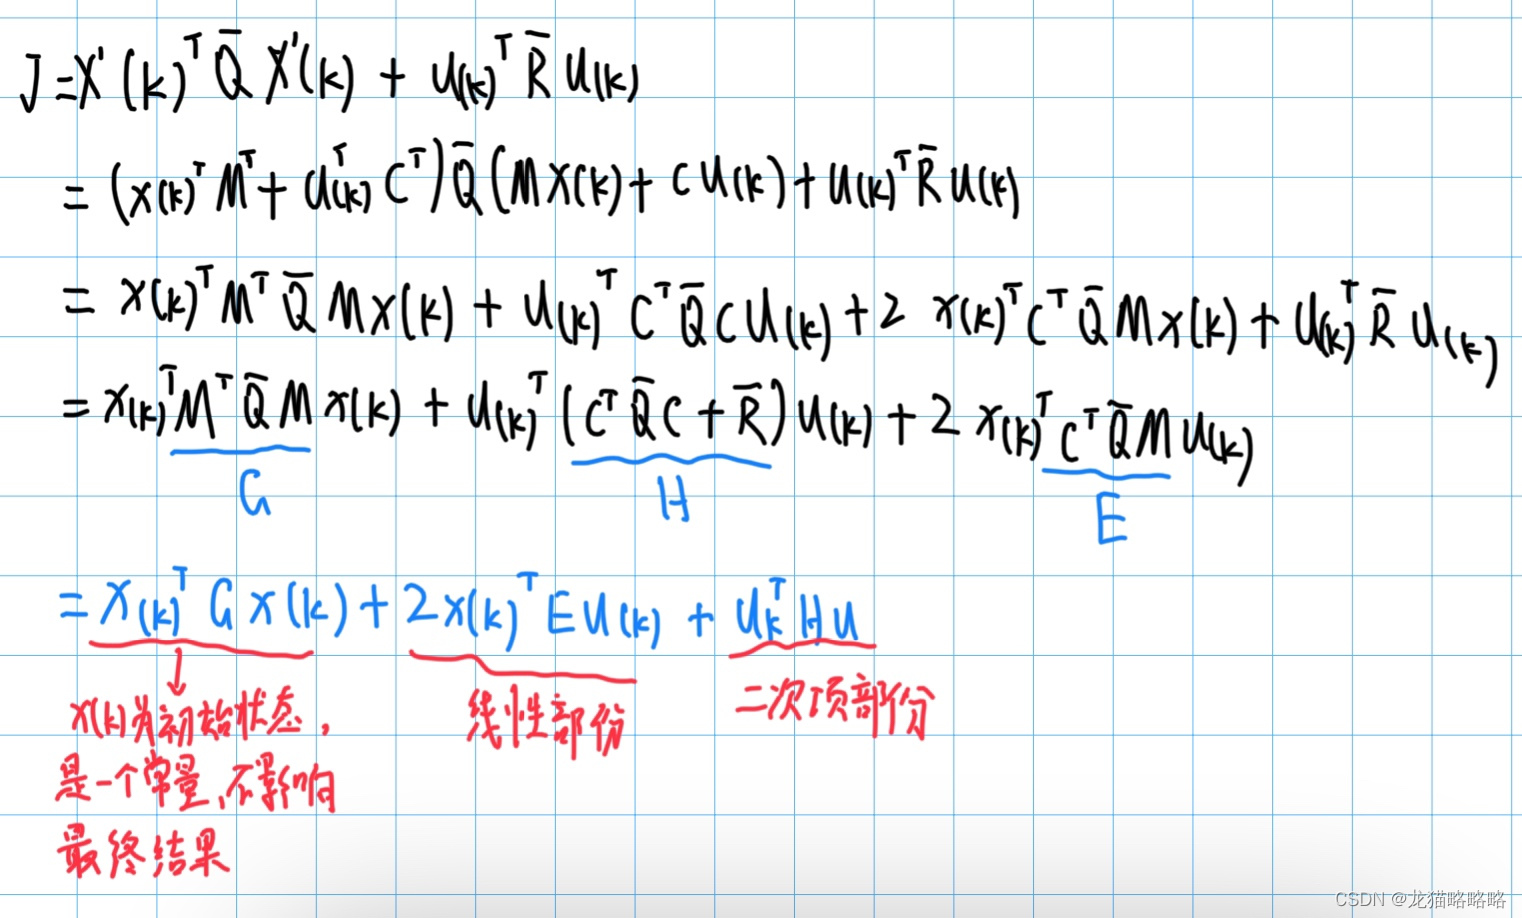 J=X'(k)ᵀQ̄X'(k) + U(k)ᵀR̄U(k)
= (x(k)ᵀMᵀ + U(k)ᵀCᵀ)Q̄(Mx(k) + CU(k) + U(k)ᵀR̄U(k)
= x(k)ᵀMᵀQ̄Mx(k) + U(k)ᵀCᵀQ̄CU(k) + 2 x(k)ᵀCᵀQ̄Mx(k) + U(k)ᵀR̄U(k)
= x(k)ᵀMᵀQ̄Mx(k) + U(k)ᵀ(CᵀQ̄C + R̄)U(k) + 2 x(k)ᵀCᵀQ̄MU(k)
G H E
= x(k)ᵀGx(k) + 2x(k)ᵀEU(k) + UₖᵀHU
x(k)为初始状态, 线性部份 二次项部份
是一个常量,不影响
最终结果
CSDN @龙猫略略略